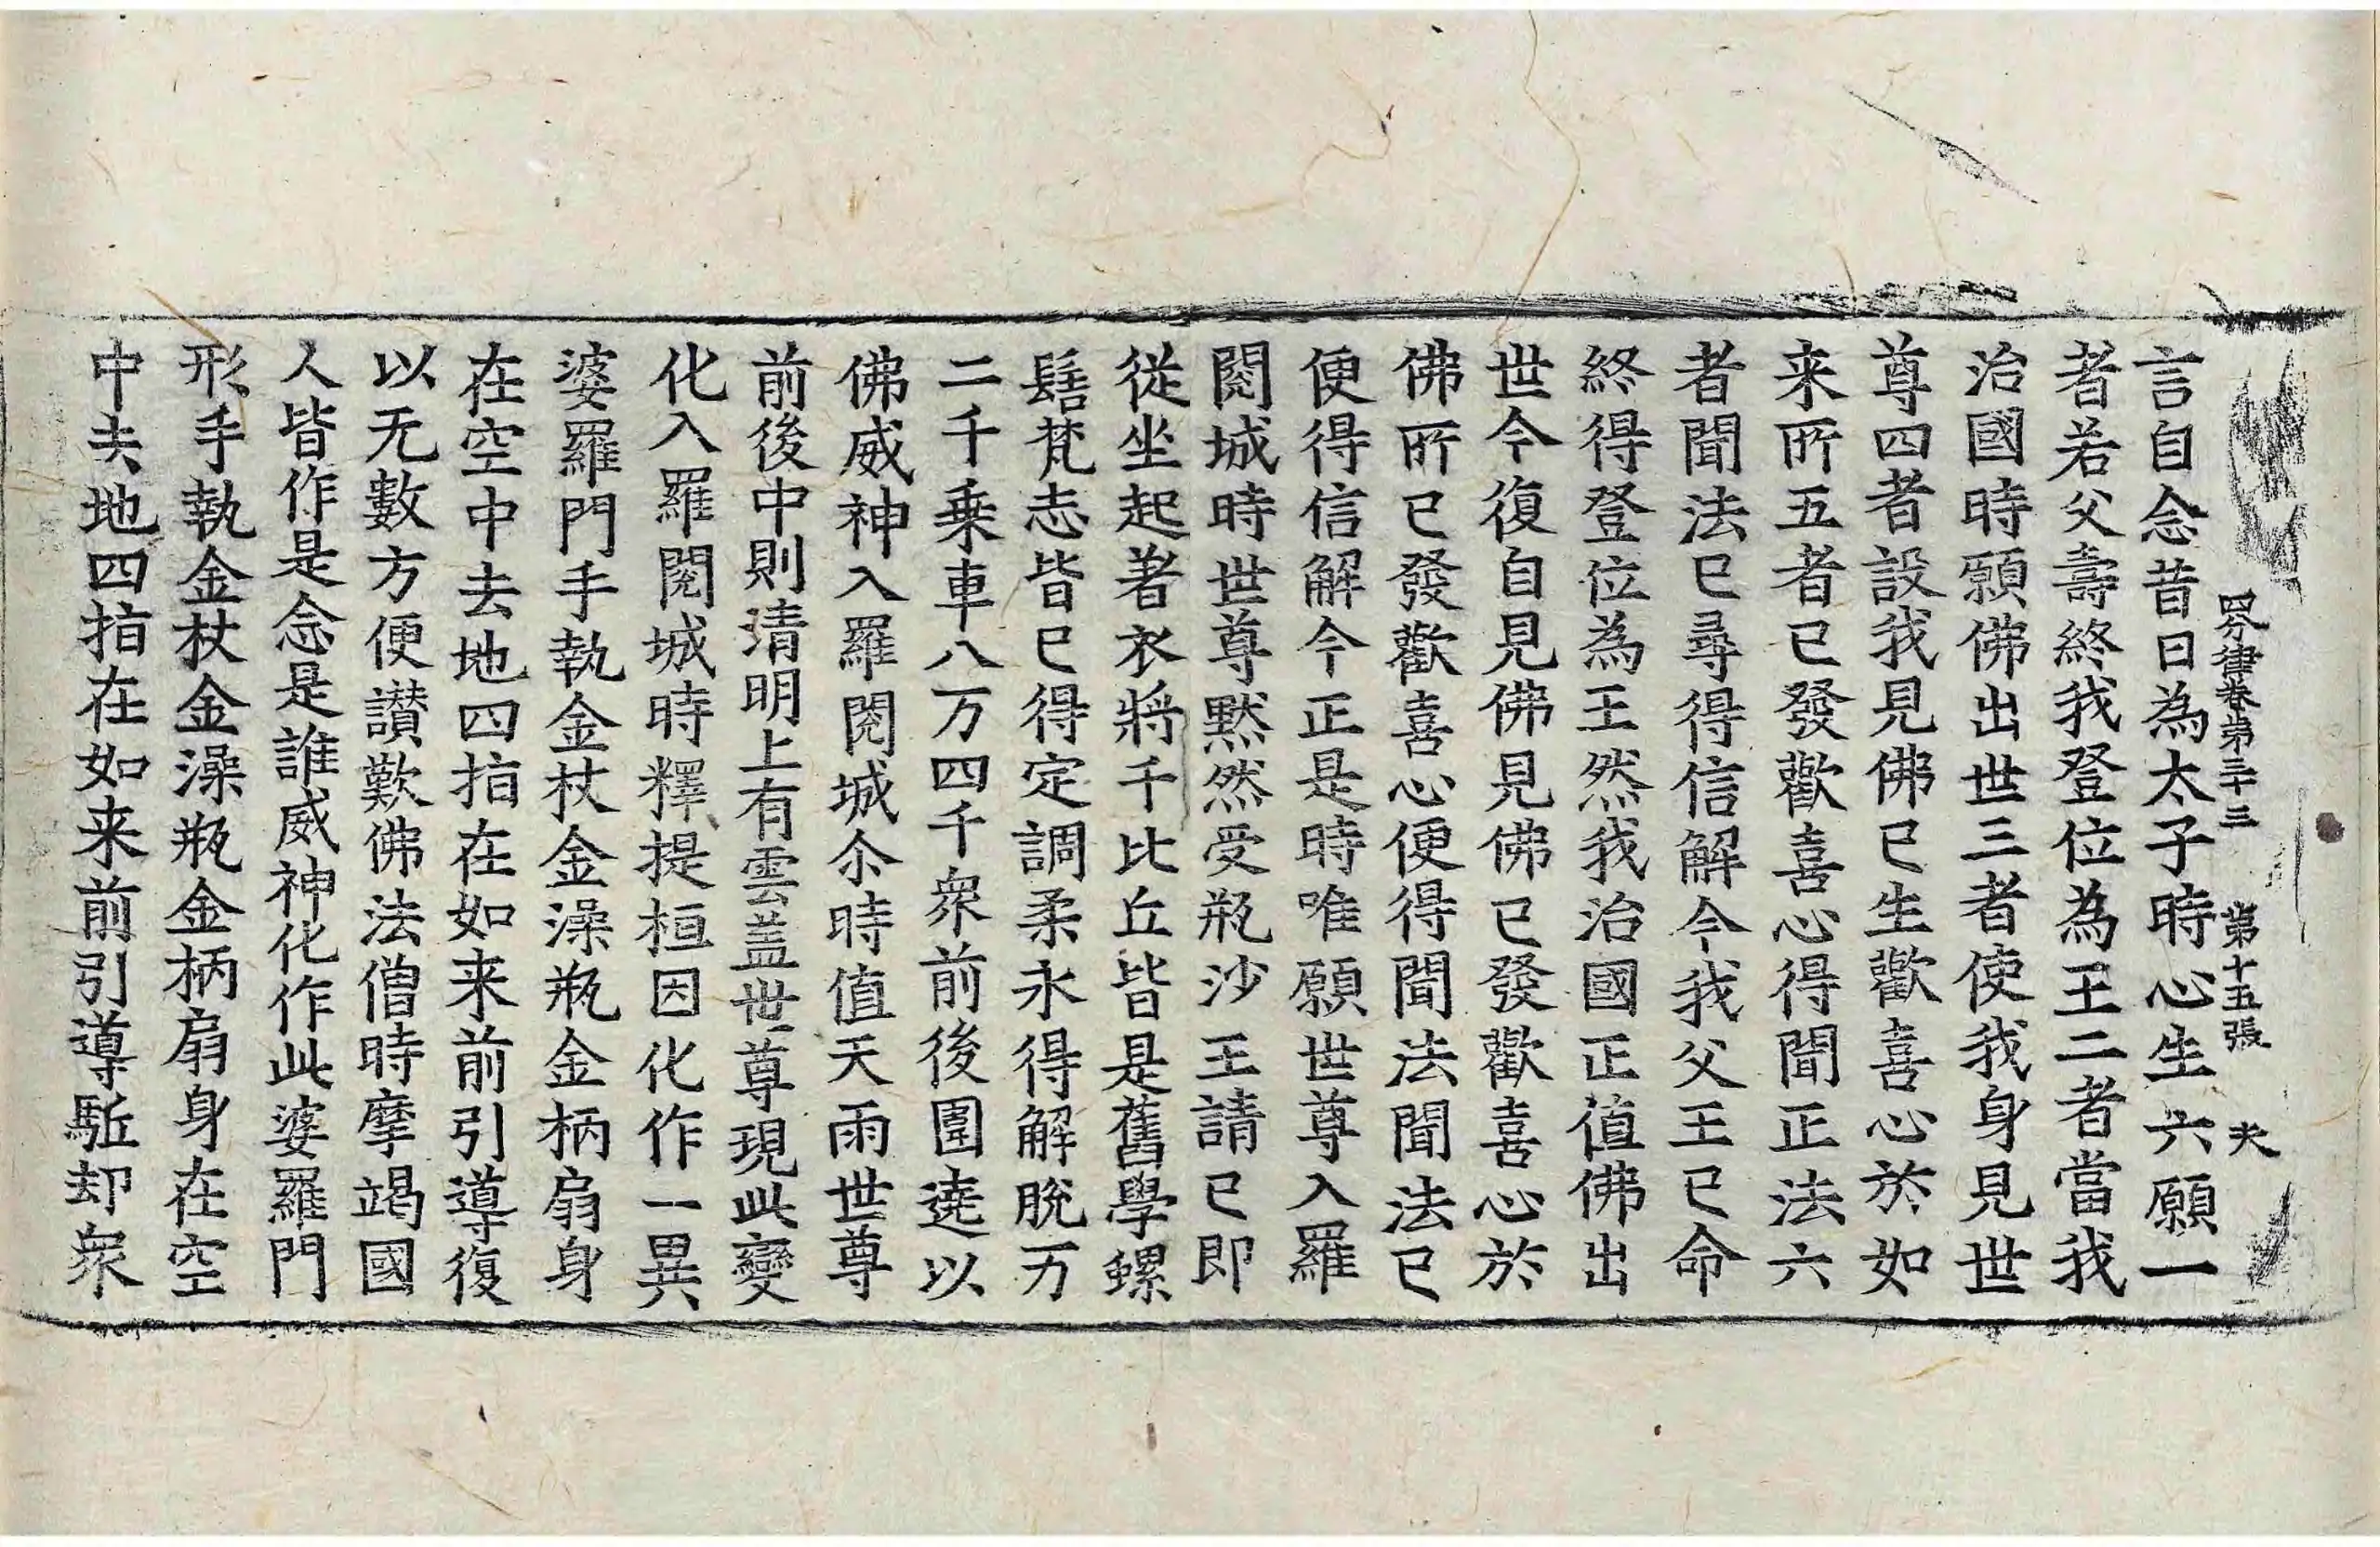 四分律卷第三十三　第十五張　夫
言自念昔日為太子時心生六願一
者若父壽終我登位為王二者當我
治國時願佛出世三者使我身見世
尊四者設我見佛已生歡喜心於如
来所五者已發歡喜心得聞正法六
者聞法已尋得信解今我父王已命
終得登位為王然我治國正值佛出
世今復自見佛見佛已發歡喜心於
佛所已發歡喜心便得聞法聞法已
便得信解今正是時唯願世尊入羅
閱城時世尊默然受瓶沙王請已即
從坐起著衣將千比丘皆是舊學螺
髻梵志皆已得定調柔永得解脫万
二千乗車八万四千衆前後圍遶以
佛威神入羅閱城尒時值天雨世尊
前後中則清明上有雲盖世尊現此變
化入羅閱城時釋提桓因化作一異
婆羅門手執金杖金澡瓶金柄扇身
在空中去地四指在如来前引導復
以无數方便讃歎佛法僧時摩竭國
人皆作是念是誰威神化作此婆羅門
形手執金杖金澡瓶金柄扇身在空
中去地四指在如来前引導駈却衆